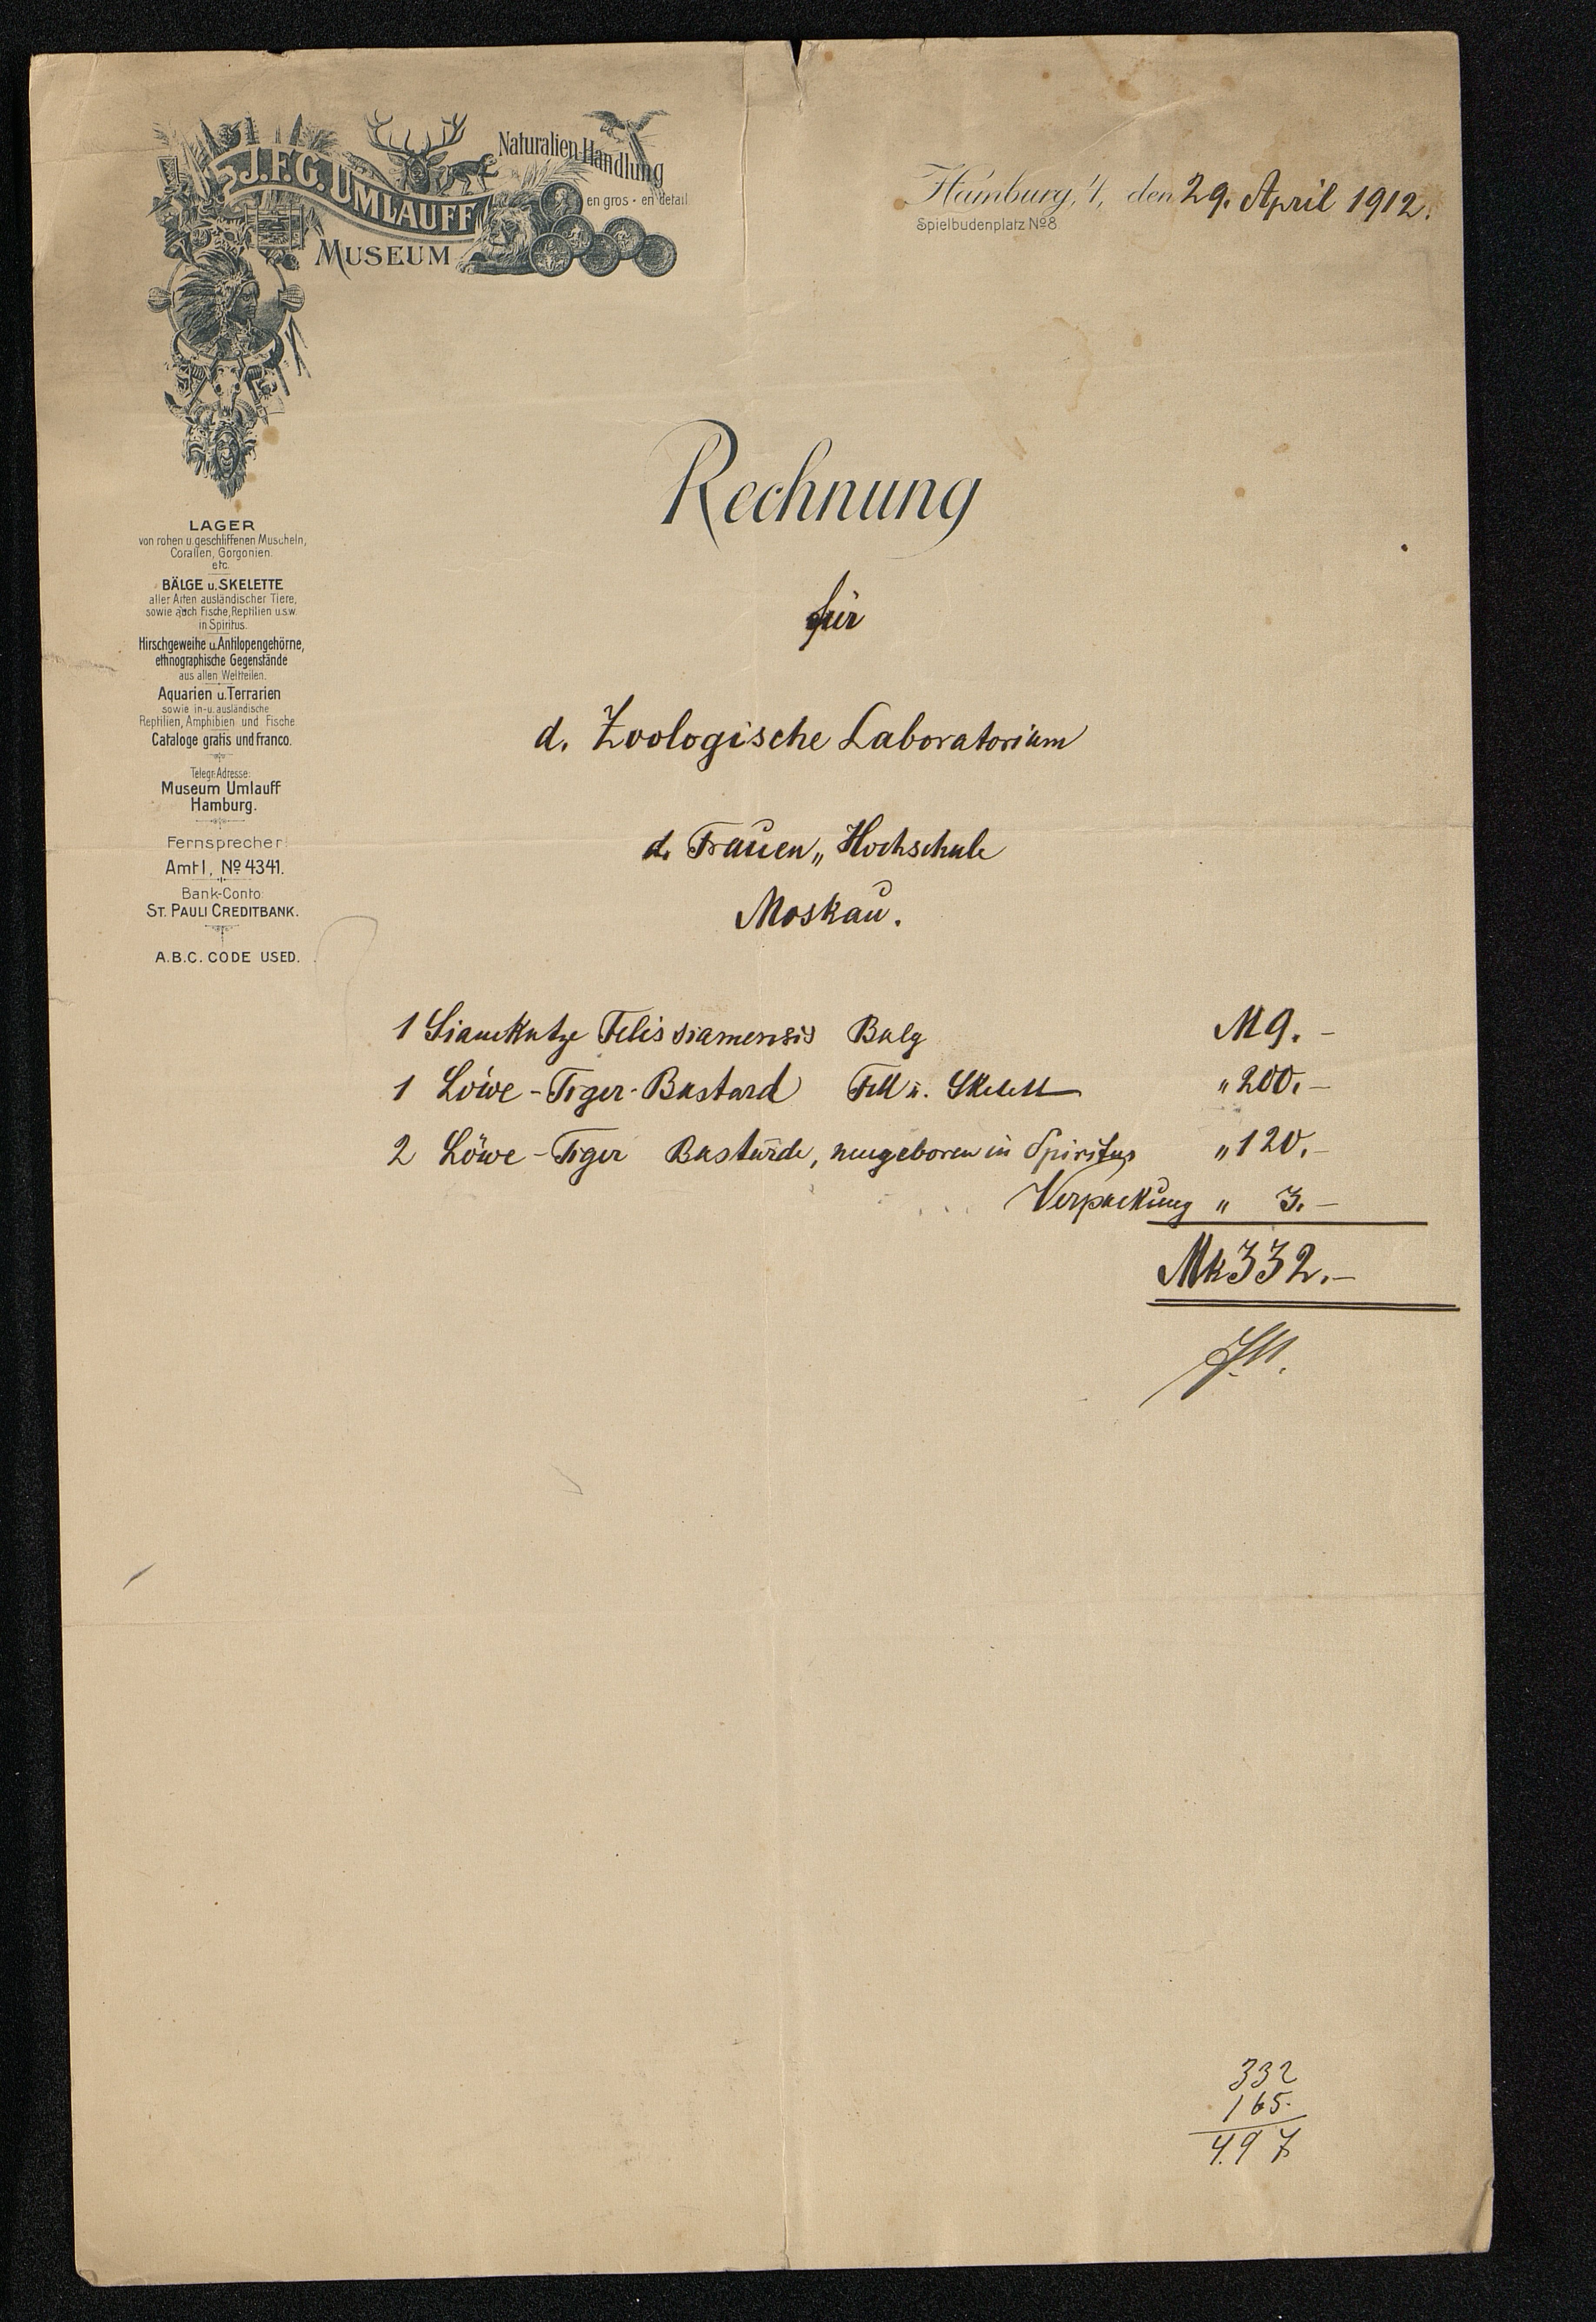 J.F.G. UMLAUFF
MUSEUM
Naturalien-Handlung
en gros - en detail
Hamburg, 4, den 29. April 1912.
Spielbudenplatz No 8
Rechnung
für
d. Zoologische Laboratorium
d. Frauen„ Hochschule
Moskau.
LAGER
von rohen u. geschliffenen Muscheln,
Corallen, Gorgonien.
etc.
BÄLGE u. SKELETTE
aller Arten ausländischer Tiere,
sowie auch Fische, Reptilien u.s.w.
in Spiritus.
Hirschgeweihe u. Antilopengehörne,
ethnographische Gegenstände
aus allen Weltteilen.
Aquarien u. Terrarien
sowie in- u. ausländische
Reptilien, Amphibien und Fische
Cataloge gratis und franco.
Telegr. Adresse:
Museum Umlauff
Hamburg.
Fernsprecher:
Amt I, No 4341.
Bank-Conto:
ST. PAULI CREDITBANK.
A.B.C. CODE USED.
1 Siamkatze Felis siamensis Balg M 9. –
1 Löwe - Tiger - Bastard Fell u. Skelett „ 200. –
2 Löwe - Tiger Bastarde, neugeboren in Spiritus „ 120. –
Verpackung „ 3. –
Mk 332. –
332
165.
497